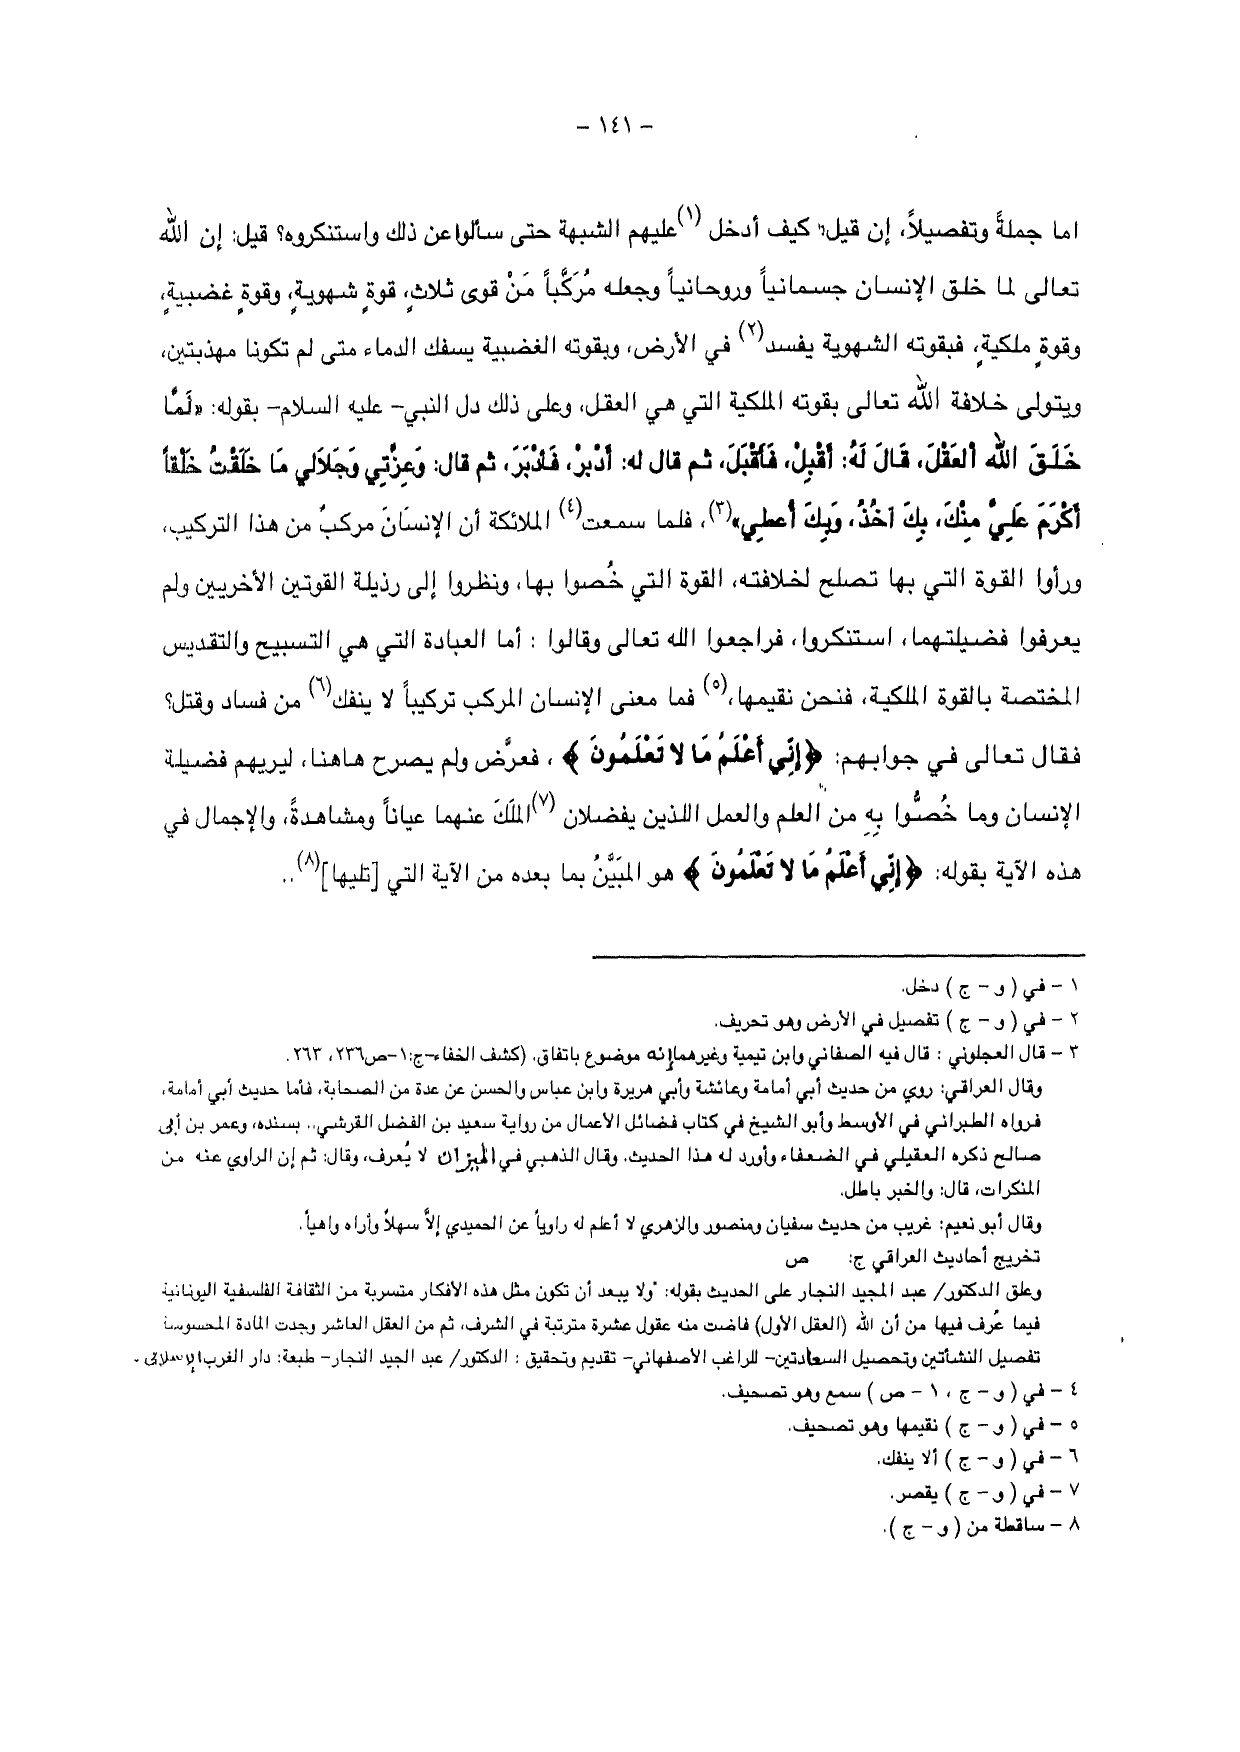 - ١٤١ -
اما جملةً وتفصيلاً، إن قيل: كيف أدخل (١) عليهم الشبهة حتى سألوا عن ذلك واستنكروه؟ قيل: إن الله
تعالى لما خلق الإنسان جسمانياً وروحانياً وجعله مُرَكَّباً مَنْ قوى ثلاثٍ، قوةٍ شهويةٍ، وقوةٍ غضبيةٍ،
وقوةٍ ملكيةٍ، فبقوته الشهوية يفسد(٢) في الأرض، وبقوته الغضبية يسفك الدماء متى لم تكونا مهذبتين،
ويتولى خلافة الله تعالى بقوته الملكية التي هي العقل، وعلى ذلك دل النبي- عليه السلام- بقوله: «لَمَّا
خَلَقَ الله العَقْلَ، قَالَ لَهُ: أقْبِلْ، فَأقْبَلَ، ثم قال له: أدْبرْ، فَأدْبَرَ، ثم قال: وَعِزَّتِي وَجَلَالي مَا خَلَقْتُ خَلْقاً
أكْرَمَ عَلَيَّ مِنْكَ، بِكَ آخُذُ، وَبِكَ أعطِي»(٣)، فلما سمعت(٤) الملائكة أن الإنسَانَ مركبٌ من هذا التركيب،
ورأوا القوة التي بها تصلح لخلافته، القوة التي خُصوا بها، ونظروا إلى رذيلة القوتين الأخريين ولم
يعرفوا فضيلتهما، استنكروا، فراجعوا الله تعالى وقالوا : أما العبادة التي هي التسبيح والتقديس
المختصة بالقوة الملكية، فنحن نقيمها،(٥) فما معنى الإنسان المركب تركيباً لا ينفك(٦) من فساد وقتل؟
فقال تعالى في جوابهم: ﴿إِنِّي أَعْلَمُ مَا لا تَعْلَمُونَ﴾ ، فعرَّض ولم يصرح هاهنا، ليريهم فضيلة
الإنسان وما خُصُّوا بِهِ من العلم والعمل اللذين يفضلان (٧)الملَكَ عنهما عياناً ومشاهدةً، والإجمال في
هذه الآية بقوله: ﴿إِنِّي أَعْلَمُ مَا لا تَعْلَمُونَ﴾ هو المَبَيَّنُ بما بعده من الآية التي [تليها](٨)..
١ - في ( و - ج ) دخل.
٢ - في ( و - ج ) تفصيل في الأرض وهو تحريف.
٣ - قال العجلوني : قال فيه الصغاني وابن تيمية وغيرهما إنه موضوع باتفاق. (كشف الخفاء-ج:١-ص٢٣٦، ٢٦٣.
وقال العراقي: روي من حديث أبي أمامة وعائشة وأبي هريرة وابن عباس والحسن عن عدة من الصحابة، فأما حديث أبي أمامة،
فرواه الطبراني في الأوسط وأبو الشيخ في كتاب فضائل الأعمال من رواية سعيد بن الفضل القرشي.. بسنده، وعمر بن أبى
صالح ذكره العقيلي في الضعفاء وأورد له هذا الحديث. وقال الذهبي في الميزان لا يُعرف، وقال: ثم إن الراوي عنه من
المنكرات، قال: والخبر باطل.
وقال أبو نعيم: غريب من حديث سفيان ومنصور والزهري لا أعلم له راوياً عن الحميدي إلاَّ سهلاً وأراه واهياً.
تخريج أحاديث العراقي ج: ص
وعلق الدكتور/ عبد المجيد النجار على الحديث بقوله: "ولا يبعد أن تكون مثل هذه الأفكار متسربة من الثقافة الفلسفية اليونانية
فيما عُرف فيها من أن الله (العقل الأول) فاضت منه عقول عشرة مترتبة في الشرف، ثم من العقل العاشر وجدت المادة المحسوسة
تفصيل النشأتين وتحصيل السعادتين- للراغب الأصفهاني- تقديم وتحقيق : الدكتور/ عبد المجيد النجار- طبعة: دار الغرب الإسلامى -
٤ - في ( و - ج ، ١ - ص ) سمع وهو تصحيف.
٥ - في ( و - ج ) نقيمها وهو تصحيف.
٦ - في ( و - ج ) ألا ينفك.
٧ - في ( و - ج ) يقصر.
٨ - ساقطة من ( و - ج ).